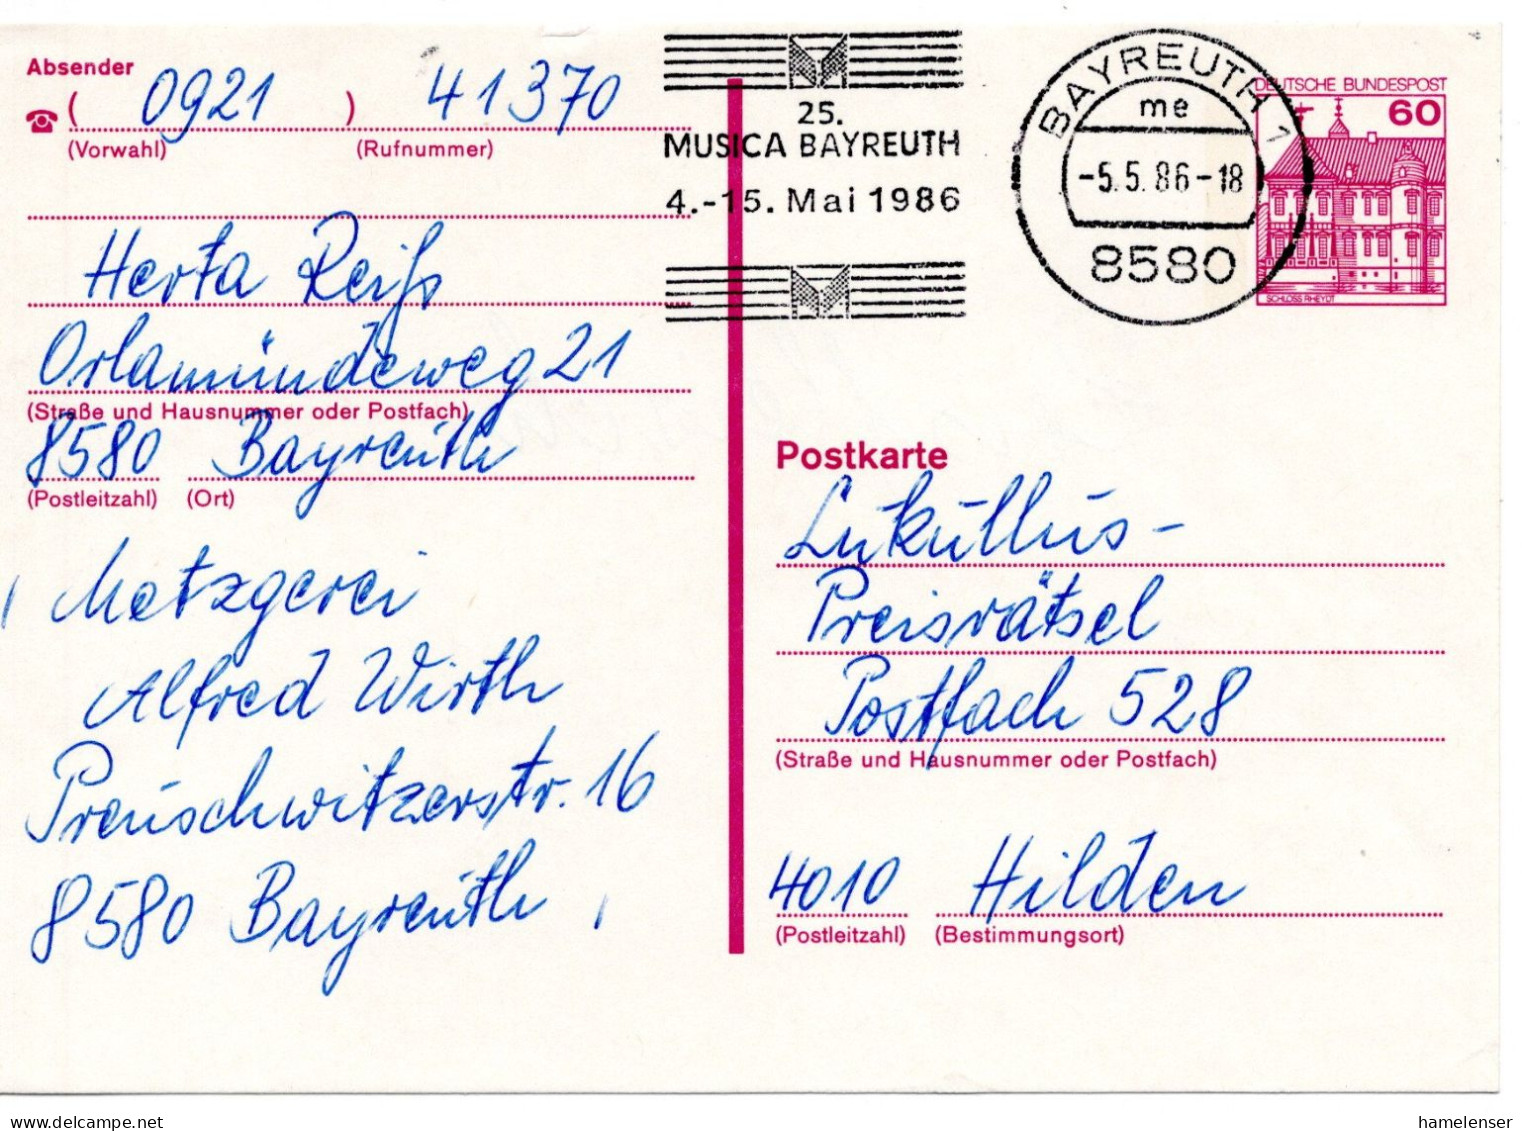 Absender
( 0921 ) 41370
(Vorwahl) (Rufnummer)
Herta Reiß
Orlamündeweg 21
(Straße und Hausnummer oder Postfach)
8580 Bayreuth
(Postleitzahl) (Ort)
Metzgerei
Alfred Wirth
Preuschwitzerstr. 16
8580 Bayreuth
25.
MUSICA BAYREUTH
4.-15. Mai 1986
BAYREUTH 1
me
-5.5.86-18
8580
DEUTSCHE BUNDESPOST
60
SCHLOSS RHEYDT
Postkarte
Lukullus-
Preisrätsel
Postfach 528
(Straße und Hausnummer oder Postfach)
4010 Hilden
(Postleitzahl) (Bestimmungsort)
delcampe.net
hamelenser